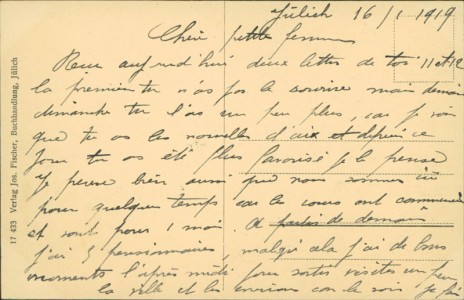 Jülich 16/1 1919
Chère petite femme
Reçu aujourd'hui deux lettres de toi 11 et 12
la première tu n'as pas le sourire mais demain
dimanche tu l'as un peu plus, car je vois
que tu as les nouvelles d'aix et depuis ce
jour tu as été plus favorisé je le pense
Je pense bien aussi que nous sommes ici
pour quelque temps car les cours ont commencé
et sont pour 1 mois. A partir de demain
j'ai 5 pensionnaires, malgré cela j'ai de bons
moments l'après midi pour sortir visiter un peu
la ville et les environs car le soir je
17 433 Verlag Jos. Fischer, Buchhandlung, Jülich